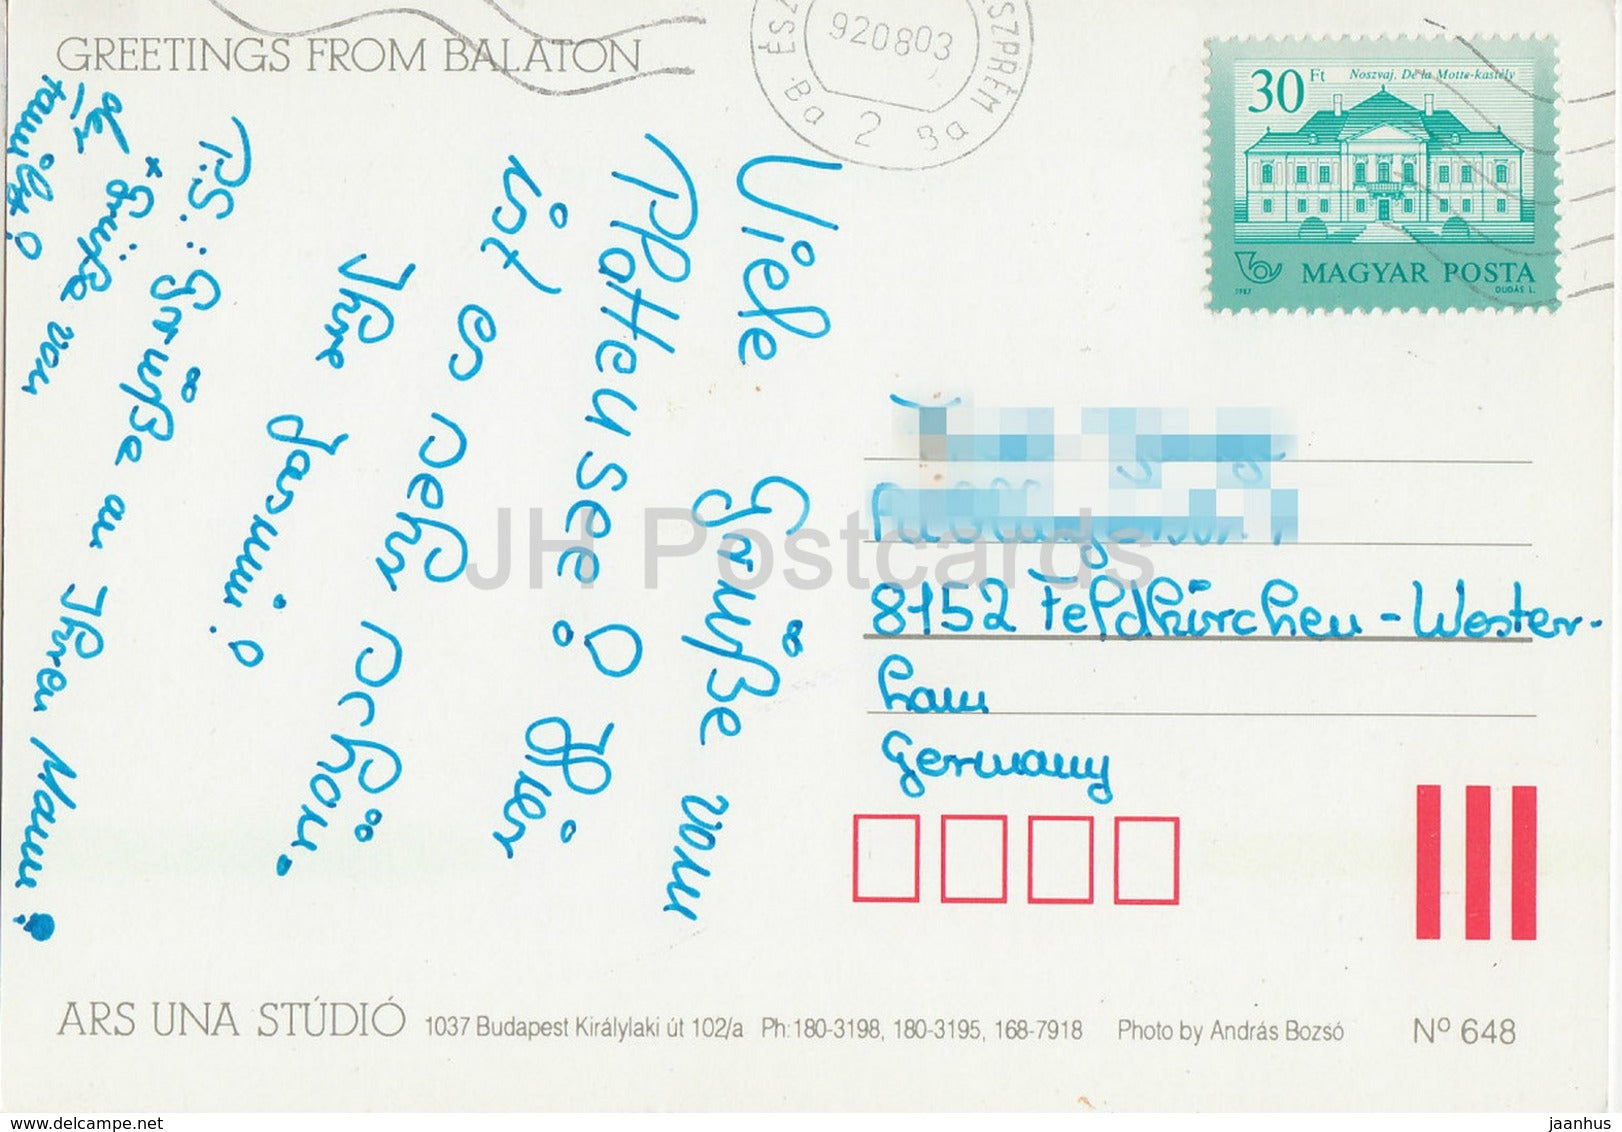 GREETINGS FROM BALATON
920803
ESZPRÉM
Ba 2 Ba
30 Ft Noszvaj. De la Motte-kastély
MAGYAR POSTA
1987 DUDÁS L.
Viele Grüße vom
Plattensee! Hier
ist es sehr schön.
Ihre Jasmin!
P.S.: Grüße an Ihren Mann!
+ Grüße von
der
8152 Feldkirchen-Wester-
ham
Germany
JH Postcards
ARS UNA STÚDIÓ 1037 Budapest Királylaki út 102/a Ph:180-3198, 180-3195, 168-7918 Photo by András Bozsó Nº 648
www.delcampe.net
jaanhus